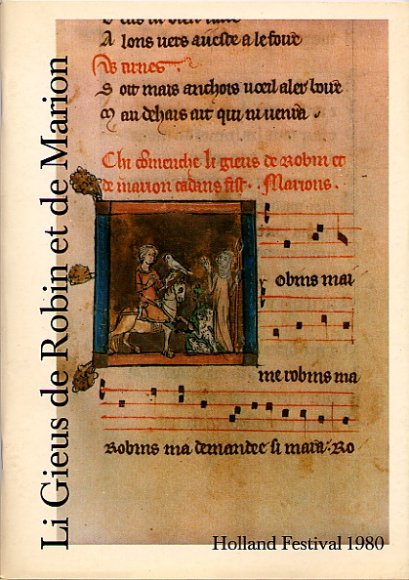 Li Gieus de Robin et de Marion
A lons uers aueste a le foire
S oit mais anchois uoeil aler boire
M au dehais ait qui ni uenra .
Chi comenche li gieus de robin et
de marion cadans fist . . Marions .
obins mai
me robins ma
Robins ma demandee si mara . Ro
Holland Festival 1980